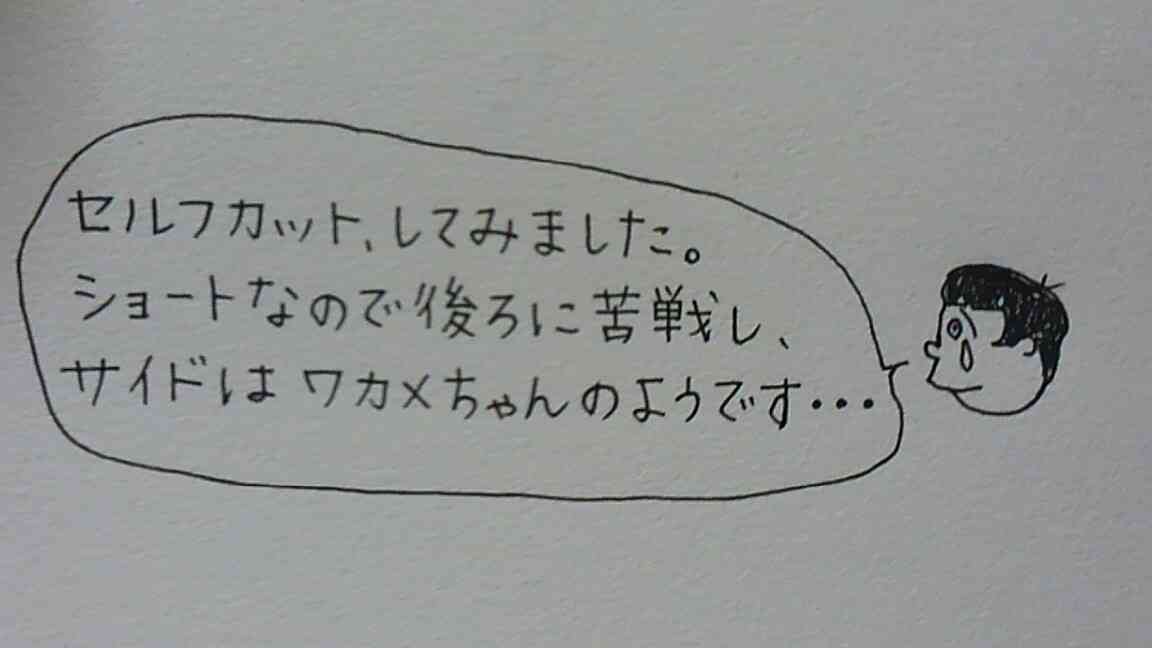 セルフカット、してみました。
ショートなので後ろに苦戦し、
サイドはワカメちゃんのようです・・・